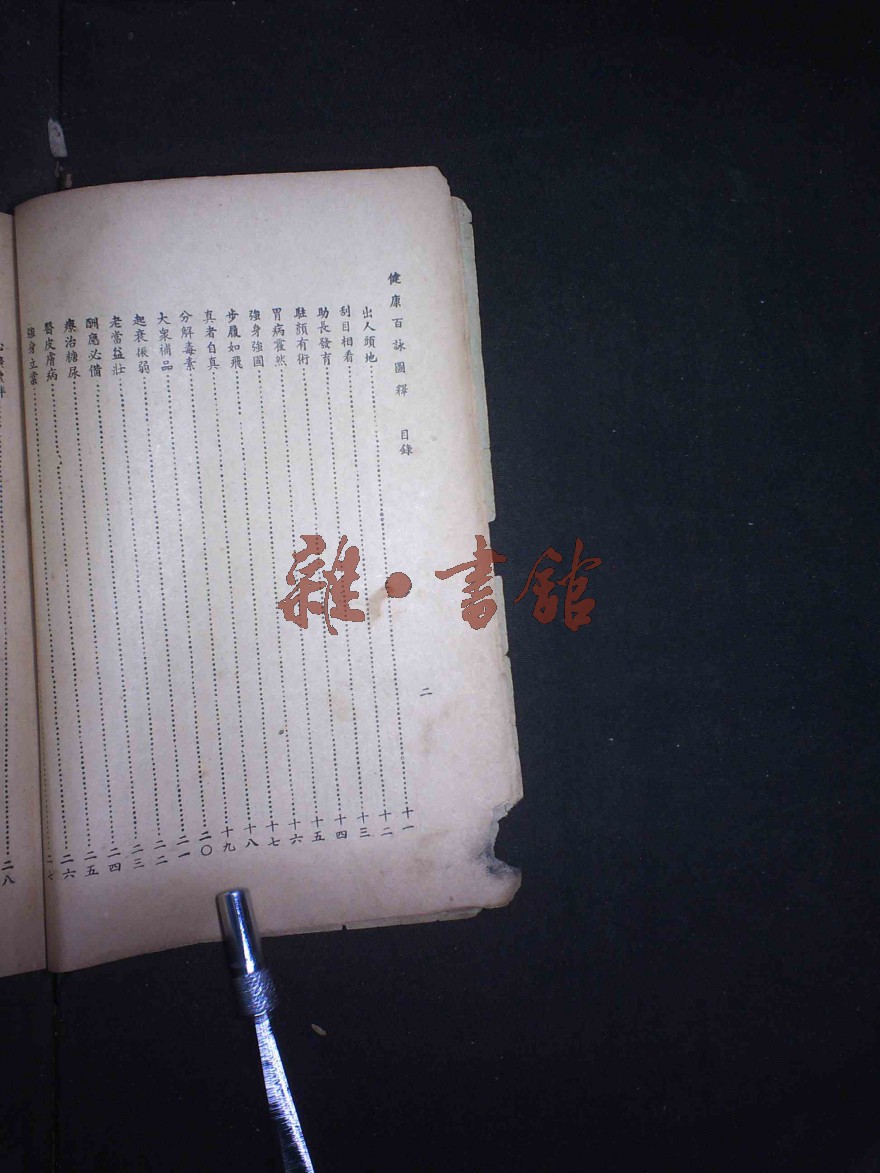 健康百詠圖釋 目錄
二
出人頭地……十一
刮目相看……十二
助長發育……十三
駐顏有術……十四
胃病霍然……十五
強身強國……十六
步履如飛……十七
真者自真……十八
分解毒素……十九
大衆補品……二〇
起衰振弱……二一
老當益壯……二二
酬應必備……二三
療治糖尿……二四
醫皮膚病……二五
強身立業……二六
二七
二八
雜·書館